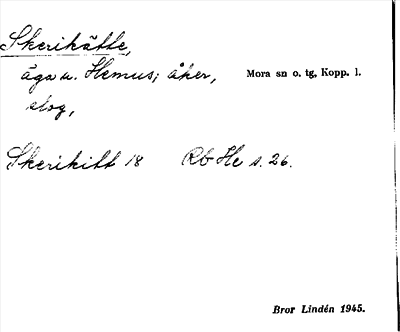 Skerikätte,
äga u. Hemus; åker, Mora sn o. tg, Kopp. l.
slog,
Skerikitt 18 Rb He s. 26.
Bror Lindén 1945.